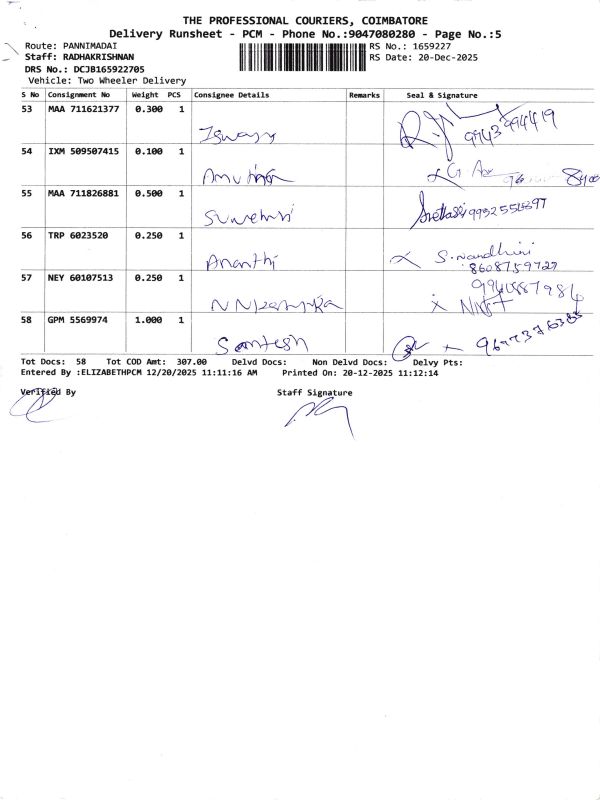 THE PROFESSIONAL COURIERS, COIMBATORE
Delivery Runsheet - PCM - Phone No.:9047080280 - Page No.:5
Route: PANNIMADAI
RS No.: 1659227
Staff: RADHAKRISHNAN
RS Date: 20-Dec-2025
DRS No.: DCJB165922705
Vehicle: Two Wheeler Delivery
S No Consignment No Weight PCS Consignee Details Remarks Seal & Signature
53 MAA 711621377 0.300 1
9943994419
54 IXM 509507415 0.100 1
Amutha
55 MAA 711826881 0.500 1
56 TRP 6023520 0.250 1
Ananthi
S.nandhini
8608759727
57 NEY 60107513 0.250 1
58 GPM 5569974 1.000 1
Santosh
Tot Docs: 58 Tot COD Amt: 307.00 Delvd Docs: Non Delvd Docs: Delvy Pts:
Entered By :ELIZABETHPCM 12/20/2025 11:11:16 AM Printed On: 20-12-2025 11:12:14
Verified By Staff Signature